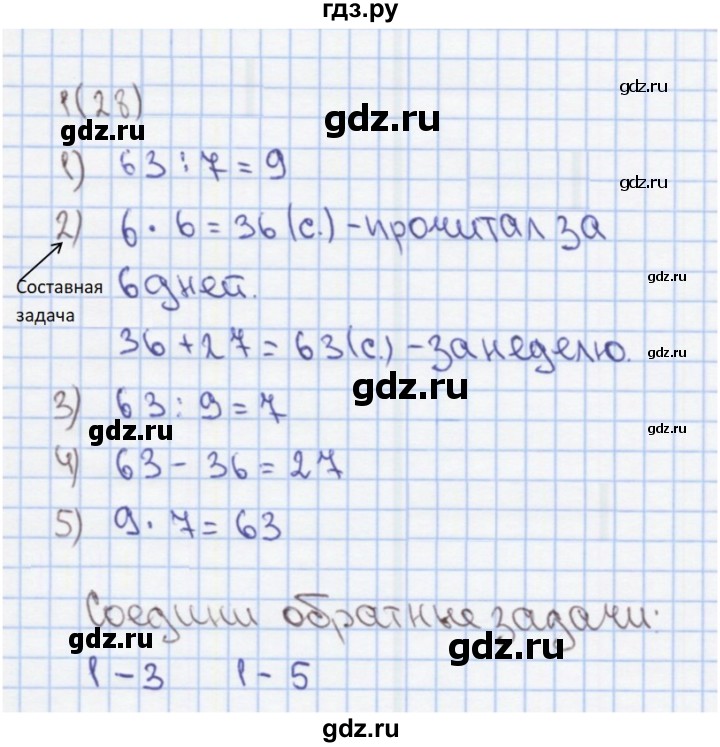 гдз.ру
1(28)
gdz.ru
gdz.ru
gdz.ru
1) 63 : 7 = 9
gdz.ru
2) 6 · 6 = 36 (с.) - прочитал за
Составная
задача
6 дней.
gdz.ru
36 + 27 = 63 (с.) - за неделю.
gdz.ru
gdz.ru
3) 63 : 9 = 7
gdz.ru
gdz.ru
4) 63 - 36 = 27
5) 9 · 7 = 63
Соедини обратные задачи:
gdz.ru
gdz.ru
1 - 3 1 - 5
gdz.ru